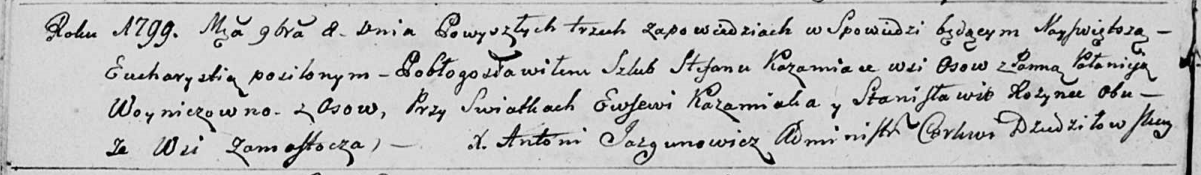 Roku 1799. Mca 9bra 8. Dnia Powyszłych trzech zapowiedziach w Spowiedzi będącym Nayswiętszą –
Eucharystią posilonym – Pobłogosławiłem Szlub Stefanu Kazamiace wsi Osow z Panną Katariną
Woyniczowno. z Osow, Przy Swiatkach Ewsewi Kazamiaka y Stanisławie Kożynce Obu –
ze Wsi Zamostocza, – X. Antoni Jazgunowicz Administr Cerkwi Dziedziłowskiey